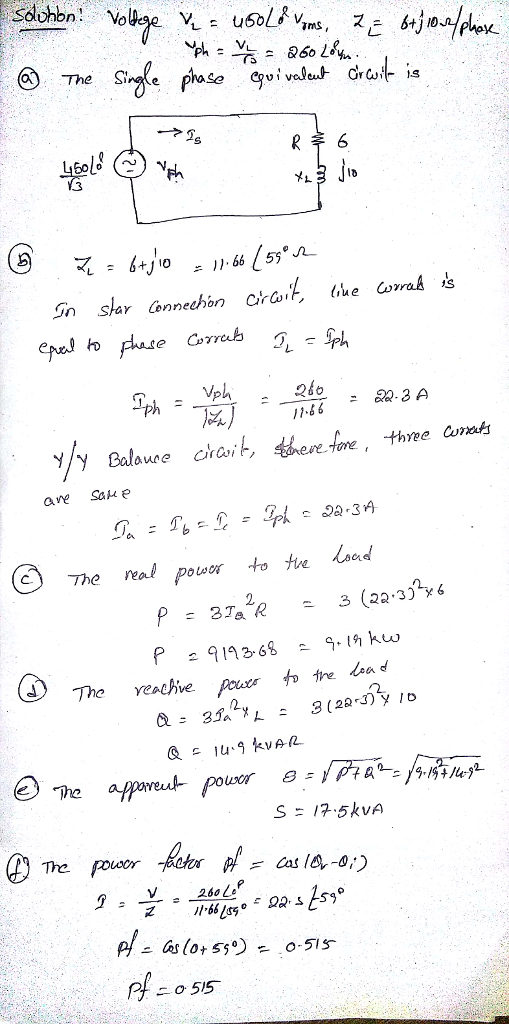 Solution: Voltage V_L = 450∠0° Vrms, Z = 6+j10Ω/phase
Vph = V_L/√3 = 260∠0° V
ⓐ The Single phase equivalent circuit is
→ Is
R 6
450∠0°/√3 Vph X_L j10
ⓑ Z_L = 6+j10 = 11.66∠59° Ω
In star connection circuit, line current is
equal to phase currents I_L = Iph
Iph = Vph/|Z_L| = 260/11.66 = 22.3 A
Y/Y Balance circuit, therefore, three currents
are same
Ia = Ib = Ic = Iph = 22.3A
ⓒ The real power to the load
P = 3Ia²R = 3(22.3)²×6
P = 9193.68 = 9.19 kW
ⓓ The reactive power to the load
Q = 3Ia²X_L = 3(22.3)²×10
Q = 14.9 kVAR
ⓔ The apparent power S = √P²+Q² = √9.19²+14.9²
S = 17.5kVA
ⓕ The power factor pf = cos(θv-θi)
I = V/Z = 260∠0°/11.66∠59° = 22.3∠-59°
Pf = cos(0+59°) = 0.515
Pf = 0.515